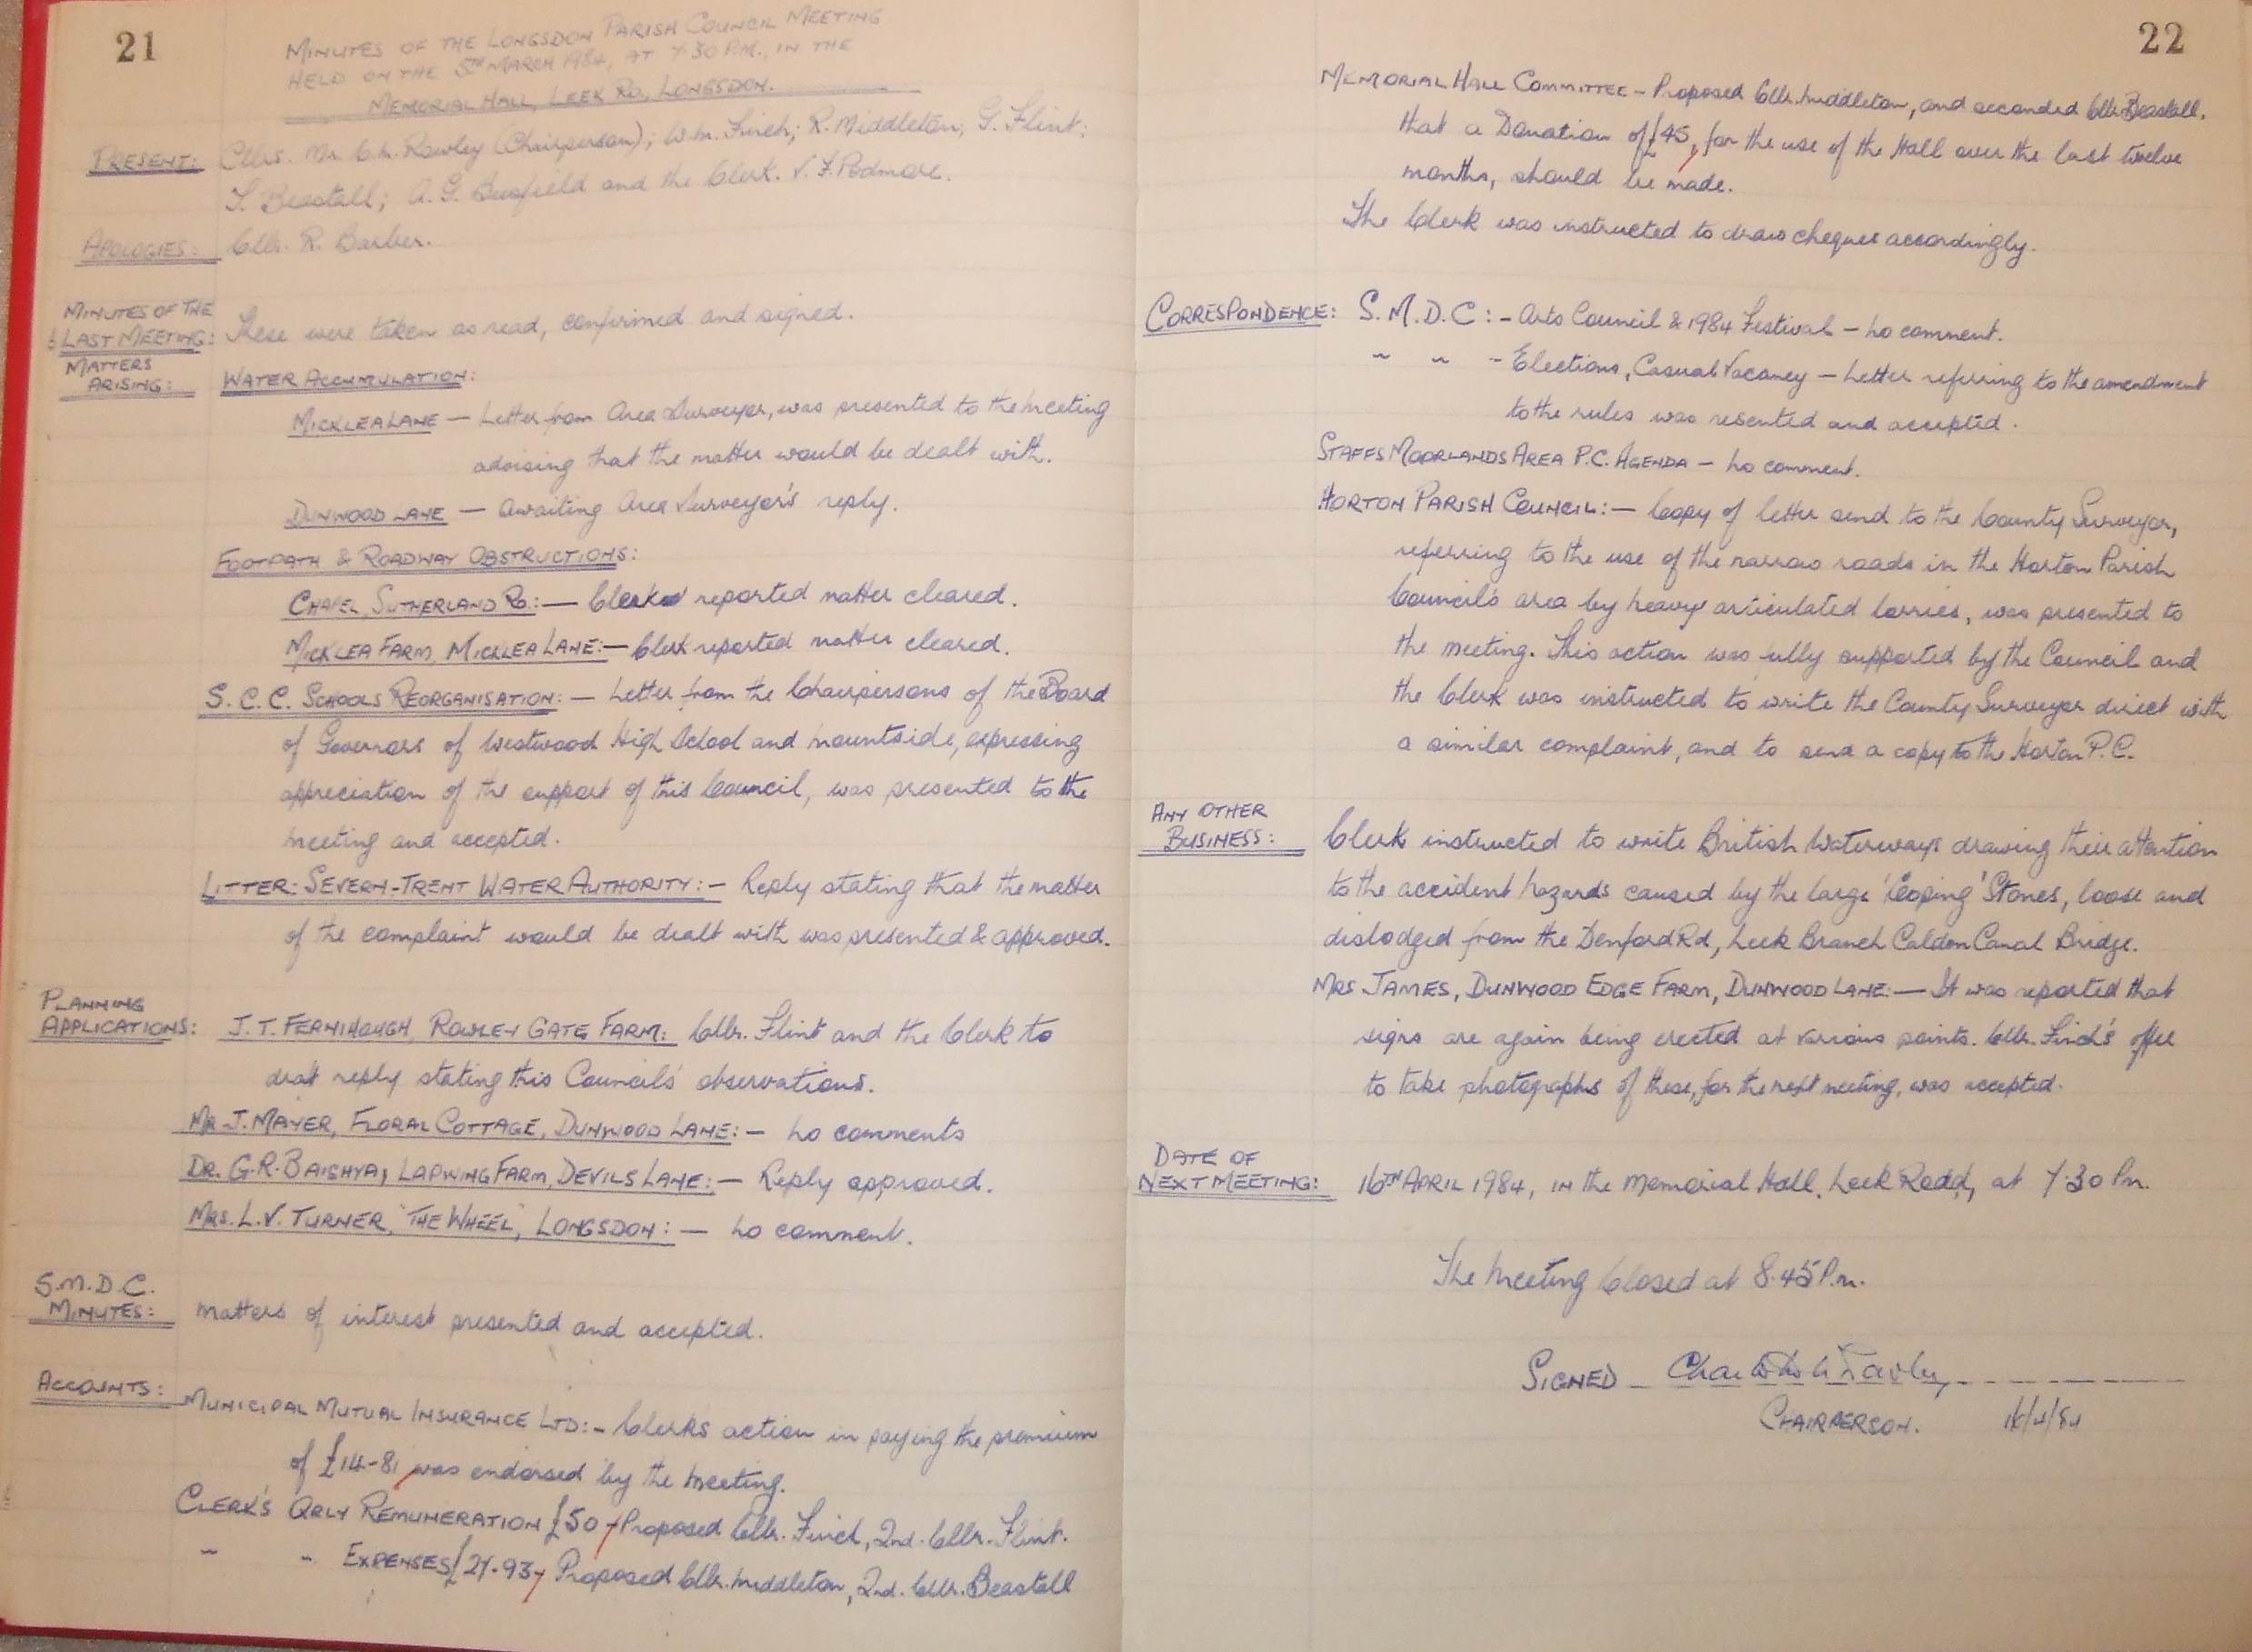 21
MINUTES OF THE LONGSDON PARISH COUNCIL MEETING
HELD ON THE 5TH MARCH 1984, AT 7·30 P.M., IN THE
MEMORIAL HALL, LEEK RD, LONGSDON.
PRESENT: Cllrs. Mr. C.L. Rowley (Chairperson); W.M. Finch; R. Middleton; G. Flint;
S. Beastall; A.G. Busfield and the Clerk. V.F. Podmore.
APOLOGIES: Cllr. R. Barber.
MINUTES OF THE
LAST MEETING: These were taken as read, confirmed and signed.
MATTERS
ARISING: WATER ACCUMULATION:
MICKLEA LANE — Letter from Area Surveyor, was presented to the meeting
advising that the matter would be dealt with.
DUNWOOD LANE — Awaiting Area Surveyor's reply.
FOOTPATH & ROADWAY OBSTRUCTIONS:
CHAPEL, SUTHERLAND RD.: — Clerk reported matter cleared.
MICKLEA FARM, MICKLEA LANE: — Clerk reported matter cleared.
S.C.C. SCHOOLS REORGANISATION: — Letter from the Chairpersons of the Board
of Governors of Westwood High School and Mountside, expressing
appreciation of the support of this Council, was presented to the
meeting and accepted.
LITTER: SEVERN-TRENT WATER AUTHORITY: — Reply stating that the matter
of the complaint would be dealt with was presented & approved.
PLANNING
APPLICATIONS: J.T. FERNIHOUGH, ROWLEY GATE FARM: Cllr. Flint and the Clerk to
draft reply stating this Council's observations.
MR J. MAYER, FLORAL COTTAGE, DUNWOOD LANE: — No comments
DR. G.R. BAISHYA, LAPWING FARM, DEVILS LANE: — Reply approved.
MRS. L.V. TURNER, "THE WHEEL", LONGSDON: — No comment.
S.M.D.C.
MINUTES: Matters of interest presented and accepted.
ACCOUNTS: MUNICIPAL MUTUAL INSURANCE LTD: — Clerks action in paying the premium
of £14-81 was endorsed by the meeting.
CLERK'S QRLY REMUNERATION £50 — Proposed Cllr. Finch, 2nd. Cllr. Flint.
" " EXPENSES £27.93 — Proposed Cllr. Middleton, 2nd. Cllr. Beastall
22
MEMORIAL HALL COMMITTEE — Proposed Cllr. Middleton, and seconded Cllr. Beastall,
that a Donation of £45, for the use of the Hall over the last twelve
months, should be made.
The Clerk was instructed to draw cheques accordingly.
CORRESPONDENCE: S.M.D.C: — Arts Council & 1984 Festival — No comment.
" " — Elections, Casual Vacancy — Letter referring to the amendment
to the rules was resented and accepted.
STAFFS MOORLANDS AREA P.C. AGENDA — No comment.
HORTON PARISH COUNCIL: — Copy of letter send to the County Surveyor,
referring to the use of the narrow roads in the Horton Parish
Council's area by heavy articulated lorries, was presented to
the meeting. This action was fully supported by the Council and
the Clerk was instructed to write the County Surveyor direct with
a similar complaint, and to send a copy to the Horton P.C.
ANY OTHER
BUSINESS: Clerk instructed to write British Waterways drawing their attention
to the accident hazards caused by the large 'Coping' Stones, loose and
dislodged from the Denford Rd, Leek Branch Caldon Canal Bridge.
MRS JAMES, DUNWOOD EDGE FARM, DUNWOOD LANE: — It was reported that
signs are again being erected at various points. Cllr. Finch's offer
to take photographs of these, for the next meeting, was accepted.
DATE OF
NEXT MEETING: 16TH APRIL 1984, IN the Memorial Hall, Leek Road, at 7.30 Pm.
The Meeting Closed at 8.45 P.m.
SIGNED
CHAIRPERSON. 16/4/84